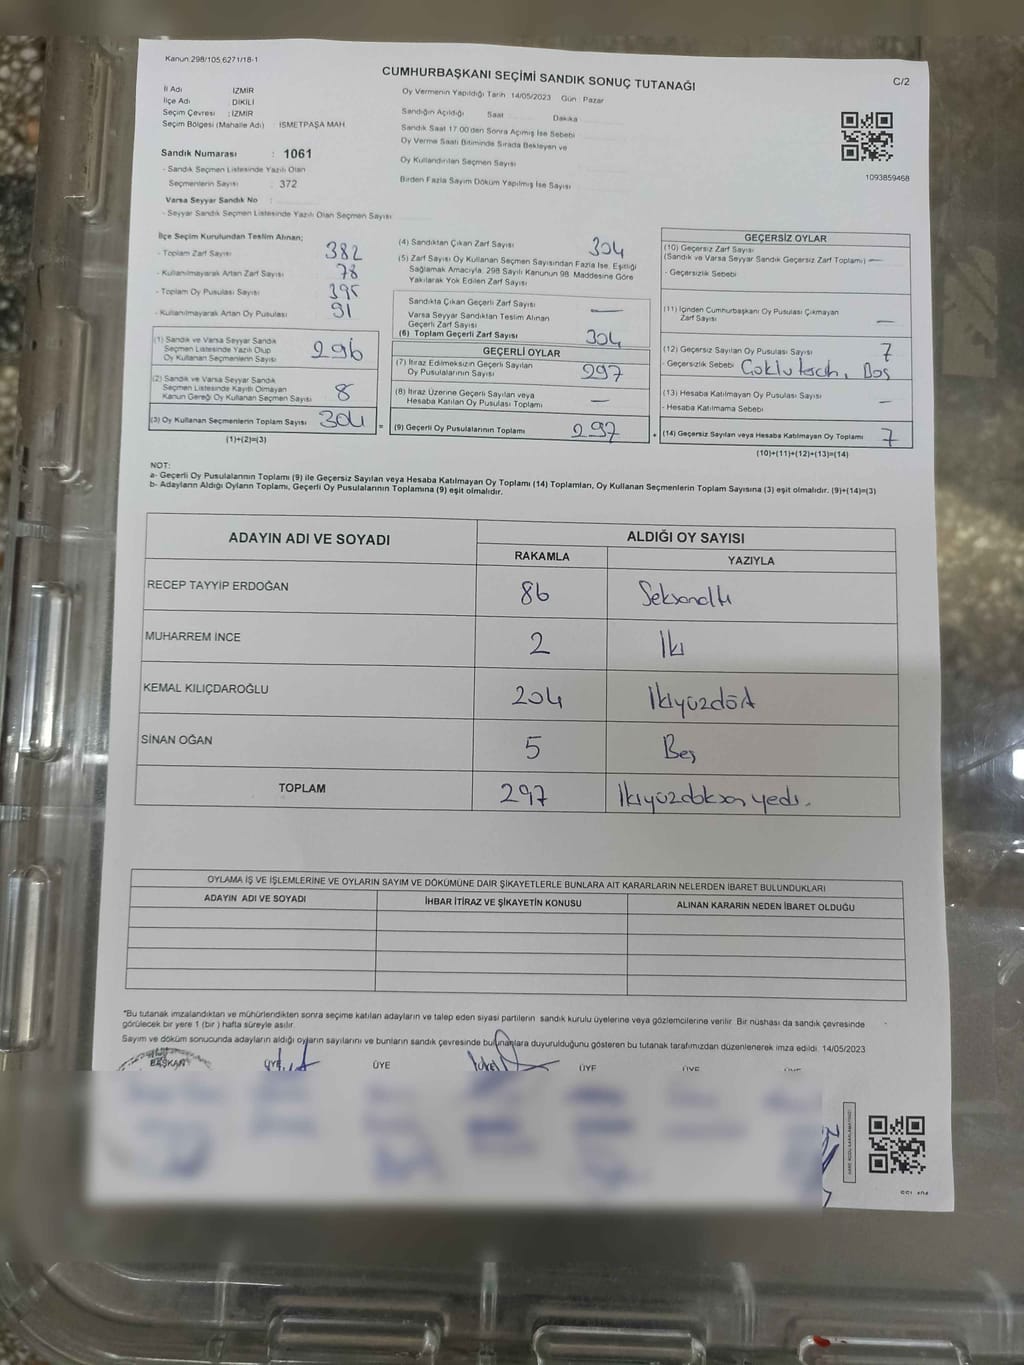 Kanun:298/105.6271/18-1
CUMHURBAŞKANI SEÇİMİ SANDIK SONUÇ TUTANAĞI
C/2
İl Adı İZMİR
İlçe Adı DİKİLİ
Seçim Çevresi : İZMİR
Seçim Bölgesi (Mahalle Adı) : İSMETPAŞA MAH.
Sandık Numarası : 1061
- Sandık Seçmen Listesinde Yazılı Olan
Seçmenlerin Sayısı : 372
Varsa Seyyar Sandık No :
- Seyyar Sandık Seçmen Listesinde Yazılı Olan Seçmen Sayısı
Oy Vermenin Yapıldığı Tarih :14/05/2023 Gün : Pazar
Sandığın Açıldığı Saat Dakika
Sandık Saat 17.00'den Sonra Açımış İse Sebebi
Oy Verme Saati Bitiminde Sırada Bekleyen ve
Oy Kullandırılan Seçmen Sayısı
Birden Fazla Sayım Döküm Yapılmış İse Sayısı
1093859468
İlçe Seçim Kurulundan Teslim Alınan;
- Toplam Zarf Sayısı 382
- Kullanılmayarak Artan Zarf Sayısı 78
- Toplam Oy Pusulası Sayısı 395
- Kullanılmayarak Artan Oy Pusulası 91
(1) Sandık ve Varsa Seyyar Sandık
Seçmen Listesinde Yazılı Olup
Oy Kullanan Seçmenlerin Sayısı 296
(2) Sandık ve Varsa Seyyar Sandık
Seçmen Listesinde Kayıtlı Olmayan
Kanun Gereği Oy Kullanan Seçmen Sayısı 8
(3) Oy Kullanan Seçmenlerin Toplam Sayısı 304 =
(1)+(2)=(3)
(4) Sandıktan Çıkan Zarf Sayısı 304
(5) Zarf Sayısı Oy Kullanan Seçmen Sayısından Fazla İse, Eşitliği
Sağlamak Amacıyla, 298 Sayılı Kanunun 98. Maddesine Göre
Yakılarak Yok Edilen Zarf Sayısı
Sandıkta Çıkan Geçerli Zarf Sayısı —
Varsa Seyyar Sandıktan Teslim Alınan
Geçerli Zarf Sayısı
(6) Toplam Geçerli Zarf Sayısı 304
GEÇERLİ OYLAR
(7) İtiraz Edilmeksizin Geçerli Sayılan
Oy Pusulalarının Sayısı 297
(8) İtiraz Üzerine Geçerli Sayılan veya
Hesaba Katılan Oy Pusulası Toplamı —
(9) Geçerli Oy Pusulalarının Toplamı 297 +
GEÇERSİZ OYLAR
(10) Geçersiz Zarf Sayısı
(Sandık ve Varsa Seyyar Sandık Geçersiz Zarf Toplamı) —
- Geçersizlik Sebebi
(11) İçinden Cumhurbaşkanı Oy Pusulası Çıkmayan
Zarf Sayısı —
(12) Geçersiz Sayılan Oy Pusulası Sayısı 7
- Geçersizlik Sebebi Çoklu tercih, Boş
(13) Hesaba Katılmayan Oy Pusulası Sayısı —
- Hesaba Katılmama Sebebi
(14) Geçersiz Sayılan veya Hesaba Katılmayan Oy Toplamı 7
(10)+(11)+(12)+(13)=(14)
NOT:
a- Geçerli Oy Pusulalarının Toplamı (9) ile Geçersiz Sayılan veya Hesaba Katılmayan Oy Toplamı (14) Toplamları, Oy Kullanan Seçmenlerin Toplam Sayısına (3) eşit olmalıdır. (9)+(14)=(3)
b- Adayların Aldığı Oyların Toplamı, Geçerli Oy Pusulalarının Toplamına (9) eşit olmalıdır.
ADAYIN ADI VE SOYADI ALDIĞI OY SAYISI
RAKAMLA YAZIYLA
RECEP TAYYİP ERDOĞAN 86 Seksenaltı
MUHARREM İNCE 2 İki
KEMAL KILIÇDAROĞLU 204 İkiyüzdört
SİNAN OĞAN 5 Beş
TOPLAM 297 İkiyüzdoksan yedi.
OYLAMA İŞ VE İŞLEMLERİNE VE OYLARIN SAYIM VE DÖKÜMÜNE DAİR ŞİKAYETLERLE BUNLARA AİT KARARLARIN NELERDEN İBARET BULUNDUKLARI
ADAYIN ADI VE SOYADI İHBAR İTİRAZ VE ŞİKAYETİN KONUSU ALINAN KARARIN NEDEN İBARET OLDUĞU
*Bu tutanak imzalandıktan ve mühürlendikten sonra seçime katılan adayların ve talep eden siyasi partilerin sandık kurulu üyelerine veya gözlemcilerine verilir. Bir nüshası da sandık çevresinde
görülecek bir yere 1 (bir ) hafta süreyle asılır.
Sayım ve döküm sonucunda adayların aldığı oyların sayılarını ve bunların sandık çevresinde bulunanlara duyurulduğunu gösteren bu tutanak tarafımızdan düzenlenerek imza edildi. 14/05/2023
BAŞKAN ÜYE ÜYE ÜYE ÜYE ÜYE